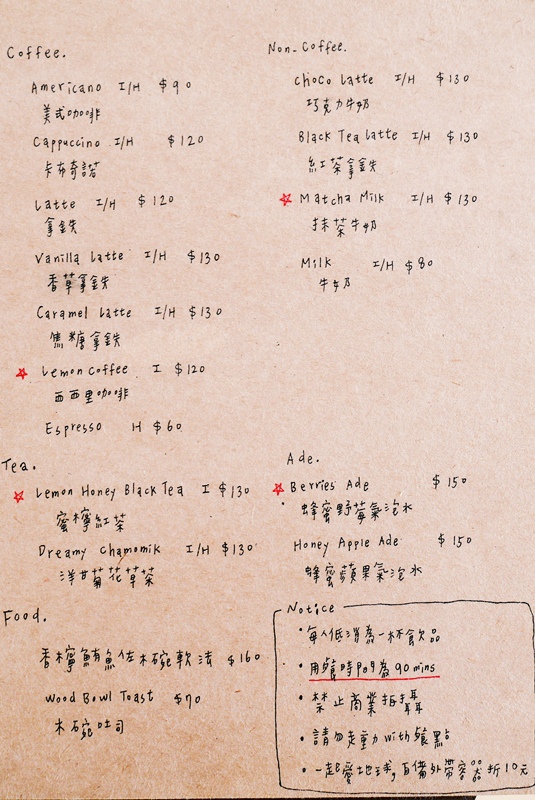 Coffee.
Americano I/H $90
美式咖啡
Cappuccino I/H $120
卡布奇諾
Latte I/H $120
拿鐵
Vanilla Latte I/H $130
香草拿鐵
Caramel Latte I/H $130
焦糖拿鐵
Lemon Coffee I $120
西西里咖啡
Espresso H $60
Non-Coffee.
Choco Latte I/H $130
巧克力牛奶
Black Tea Latte I/H $130
紅茶拿鐵
Matcha Milk I/H $130
抹茶牛奶
Milk I/H $80
牛奶
Tea.
Lemon Honey Black Tea I $130
蜜檸紅茶
Dreamy Chamomik I/H $130
洋甘菊花草茶
Ade.
Berries Ade $150
蜂蜜野莓氣泡水
Honey Apple Ade $150
蜂蜜蘋果氣泡水
Food.
香檸鮪魚佐木碗軟法 $160
Wood Bowl Toast $70
木碗吐司
Notice
•每人低消為一杯飲品
•用餐時間為90mins
•禁止商業拍攝
•請勿走動with餐點
•一起愛地球,自備外帶容器折10元